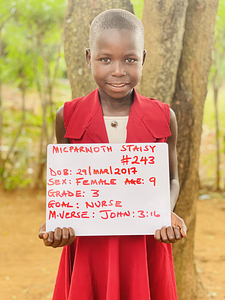 MICPARNOTH STAISY
#243
DOB: 29/MAR/2017
SEX: FEMALE AGE: 9
GRADE: 3
GOAL: NURSE
M.VERSE: JOHN: 3:16